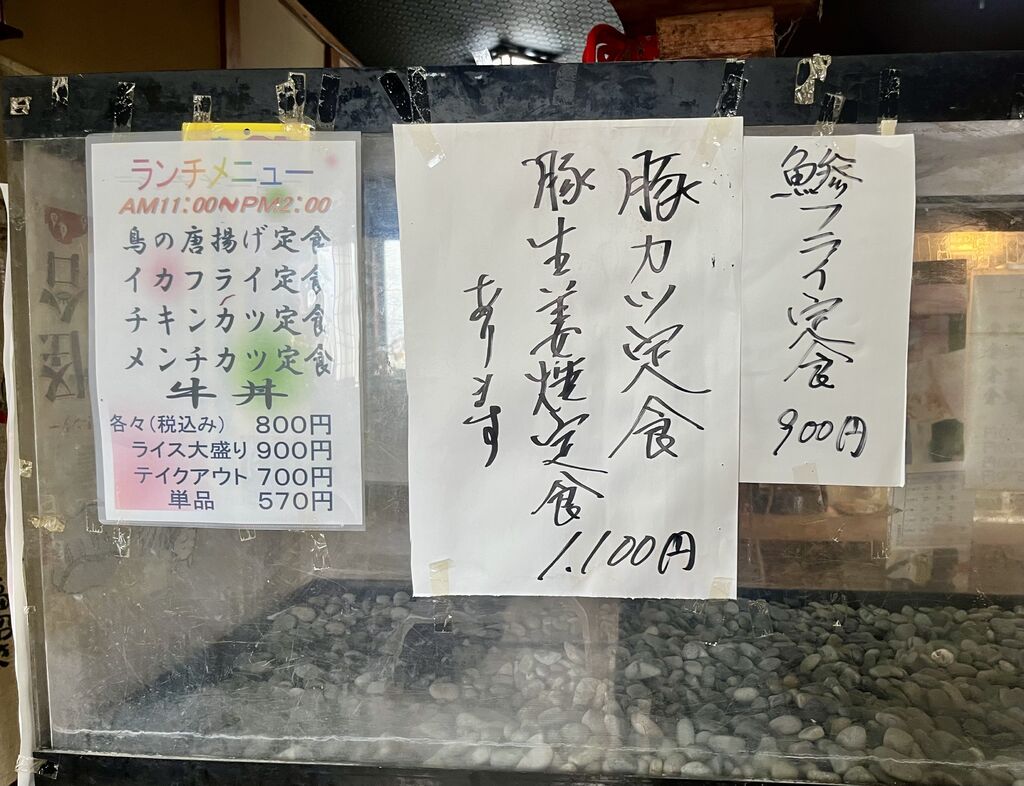 ランチメニュー
AM11:00〜PM2:00
鳥の唐揚げ定食
イカフライ定食
チキンカツ定食
メンチカツ定食
牛丼
各々(税込み) 800円
ライス大盛り 900円
テイクアウト 700円
単品 570円
豚カツ定食
豚生姜焼定食
あります
1.100円
鯵フライ定食
900円